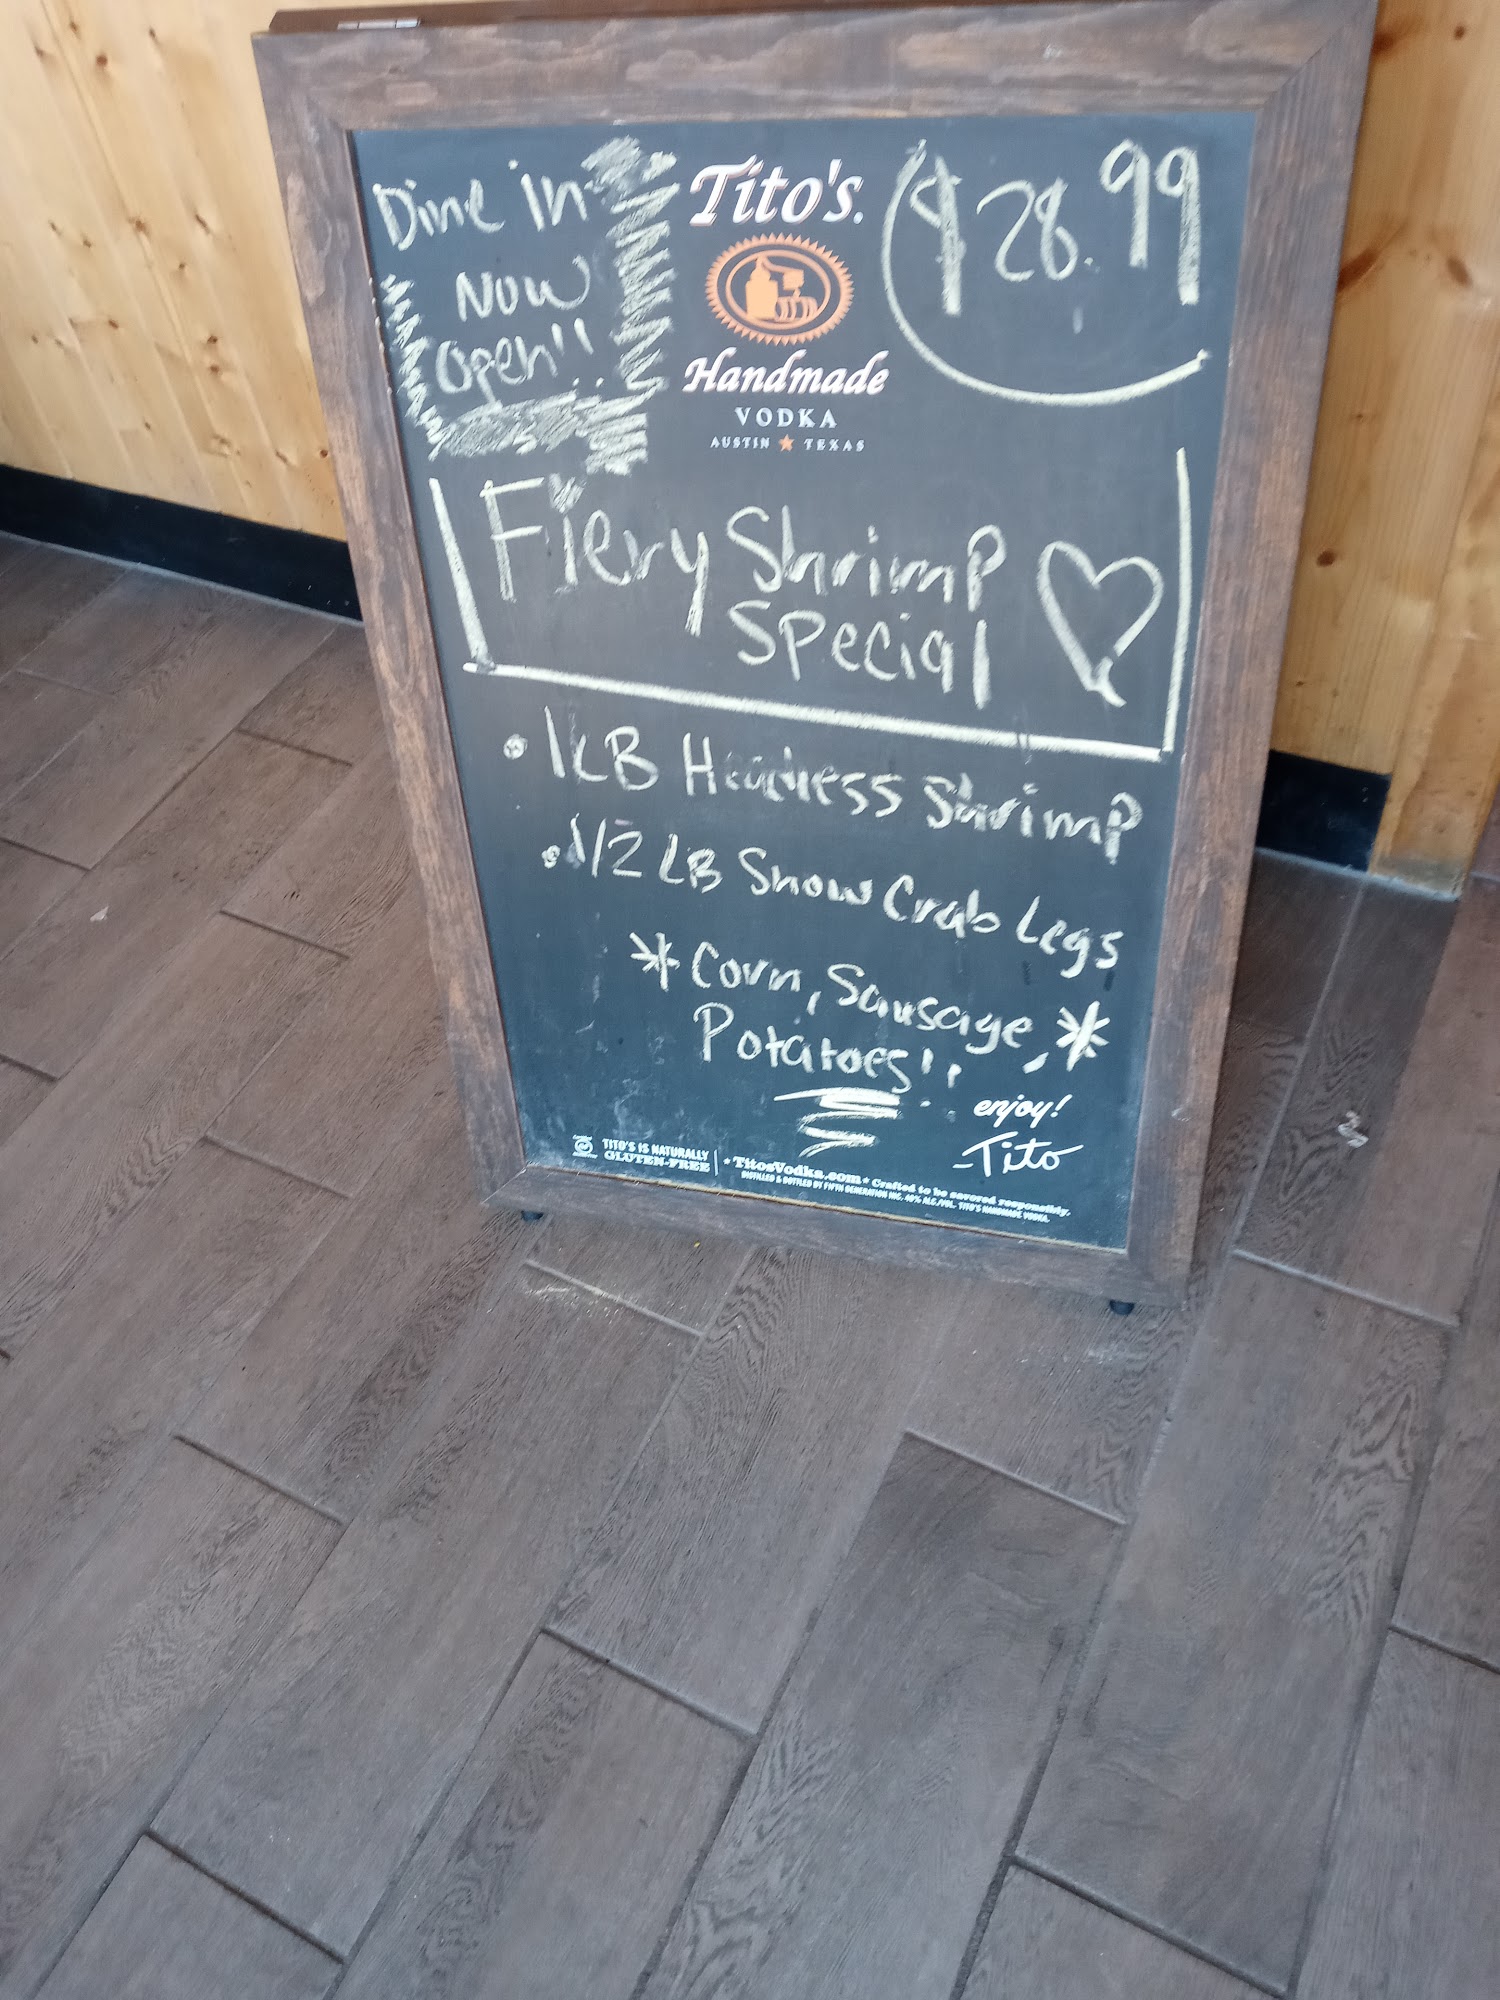 Dine in
Now
Open!!
Tito's.
Handmade
VODKA
AUSTIN ★ TEXAS
$28.99
Fiery Shrimp
Special
• 1LB Headless Shrimp
• 1/2 LB Snow Crab Legs
* Corn, Sausage, *
Potatoes!!
enjoy!
-Tito
TITO'S IS NATURALLY
GLUTEN-FREE
* TitosVodka.com * Crafted to be savored responsibly.
DISTILLED & BOTTLED BY FIFTH GENERATION INC. 40% ALC./VOL. TITO'S HANDMADE VODKA.